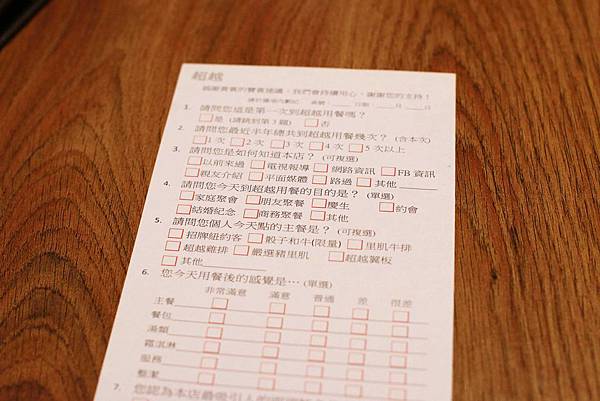 超越
感謝貴賓的寶貴建議，我們會持續用心，謝謝您的支持！
請於框格內勾記 桌號：＿＿＿日期：＿＿月＿＿日
1. 請問您這是第一次到超越用餐嗎？
□是 (請跳到第3題) □否
2. 請問您最近半年總共到超越用餐幾次？ (含本次)
□1 次 □2 次 □3 次 □4 次 □5 次以上
3. 請問您是如何知道本店？ (可複選)
□以前來過 □電視報導 □網路資訊 □FB 資訊
□親友介紹 □平面媒體 □路過 □其他＿＿＿
4. 請問您今天到超越用餐的目的是？ (單選)
□家庭聚會 □朋友聚餐 □慶生 □約會
□結婚紀念 □商務聚餐 □其他
5. 請問您個人今天點的主餐是？ (可複選)
□招牌紐約客 □骰子和牛(限量) □里肌牛排
□超越雞排 □嚴選豬里肌 □超越翼板
□其他＿＿＿
6. 您今天用餐後的感覺是… (單選)
非常滿意 滿意 普通 差 很差
主餐 □ □ □ □ □
餐包 □ □ □ □ □
湯類 □ □ □ □ □
霜淇淋 □ □ □ □ □
服務 □ □ □ □ □
整潔 □ □ □ □ □
7. 您認為本店最吸引人的